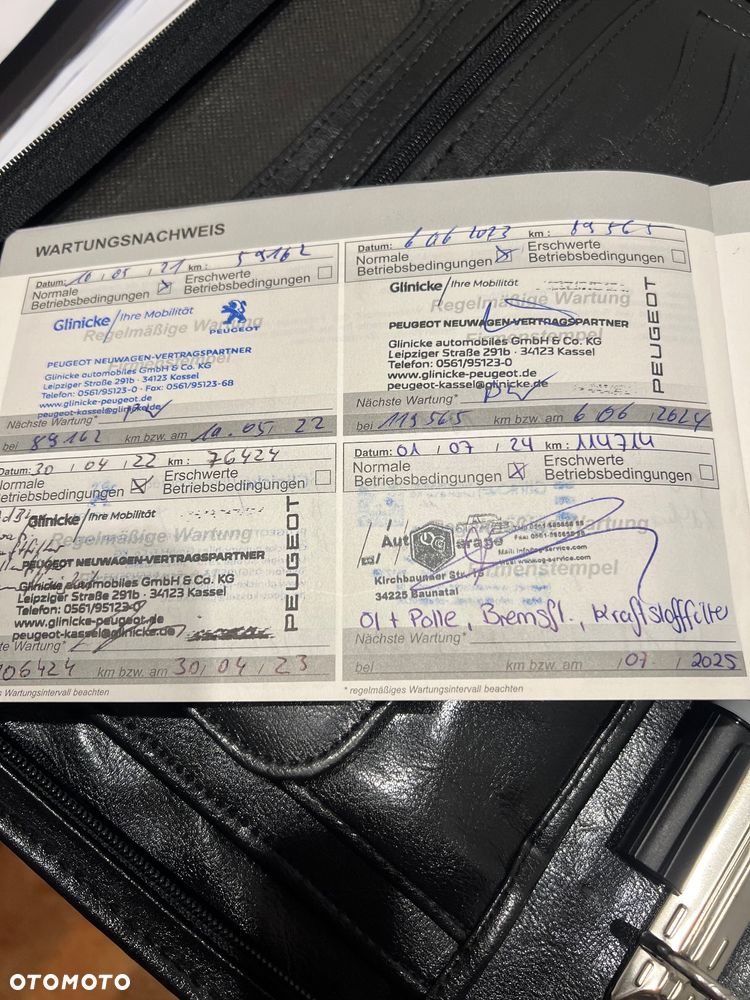 WARTUNGSNACHWEIS
Datum: 10 , 05 , 21 km: 59162
Normale Betriebsbedingungen
Erschwerte Betriebsbedingungen
Glinicke / Ihre Mobilität
PEUGEOT
Regelmäßige Wartung
PEUGEOT NEUWAGEN-VERTRAGSPARTNER
Firmenstempel
Glinicke automobiles GmbH & Co. KG
Leipziger Straße 291b · 34123 Kassel
Telefon: 0561/95123-0 · Fax: 0561/95123-68
www.glinicke-peugeot.de
peugeot-kassel@glinicke.de
Nächste Wartung*
bei 89162 km bzw. am 10. 05, 22
Datum: 6 06 2023 km: 89565
Normale Betriebsbedingungen
Erschwerte Betriebsbedingungen
Glinicke / Ihre Mobilität
Regelmäßige Wartung
PEUGEOT NEUWAGEN-VERTRAGSPARTNER
Firmenstempel
Glinicke automobiles GmbH & Co. KG
Leipziger Straße 291b · 34123 Kassel
Telefon: 0561/95123-0
www.glinicke-peugeot.de
peugeot-kassel@glinicke.de
PEUGEOT
Nächste Wartung*
bei 119565 km bzw. am 6 06 , 2024
Datum: 30 , 04 , 22 km: 76424
Normale Betriebsbedingungen
Erschwerte Betriebsbedingungen
Glinicke / Ihre Mobilität
Regelmäßige Wartung
PEUGEOT NEUWAGEN-VERTRAGSPARTNER
Glinicke automobiles GmbH & Co. KG
Leipziger Straße 291b · 34123 Kassel
Telefon: 0561/95123-0
www.glinicke-peugeot.de
peugeot-kassel@glinicke.de
PEUGEOT
Nächste Wartung*
106424 km bzw. am 30, 04 , 23
s Wartungsintervall beachten
Datum: 01 , 07 , 24 km: 114714
Normale Betriebsbedingungen
Erschwerte Betriebsbedingungen
Wartung
Firmenstempel
Kirchbaunaer Str.
34225 Baunatal
Öl + Polle, Bremsfl., Kraftstofffilter
Nächste Wartung*
bei km bzw. am , 07 , 2025
* regelmäßiges Wartungsintervall beachten
OTOMOTO